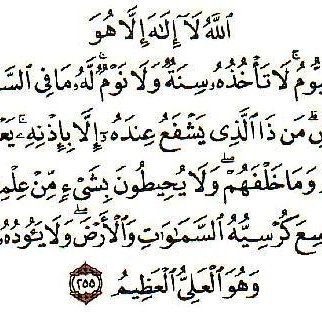 ٱللَّهُ لَآ إِلَٰهَ إِلَّا هُوَ
يُّومُ ۚ لَا تَأْخُذُهُۥ سِنَةٌ وَلَا نَوْمٌ ۚ لَّهُۥ مَا فِي ٱلسَّ
ضِ ۗ مَن ذَا ٱلَّذِي يَشْفَعُ عِندَهُۥٓ إِلَّا بِإِذْنِهِۦ ۚ يَعْ
وَمَا خَلْفَهُمْ ۖ وَلَا يُحِيطُونَ بِشَيْءٍ مِّنْ عِلْمِ
سِعَ كُرْسِيُّهُ ٱلسَّمَٰوَٰتِ وَٱلْأَرْضَ ۖ وَلَا يَـُٔودُهُۥ
وَهُوَ ٱلْعَلِيُّ ٱلْعَظِيمُ ٢٥٥